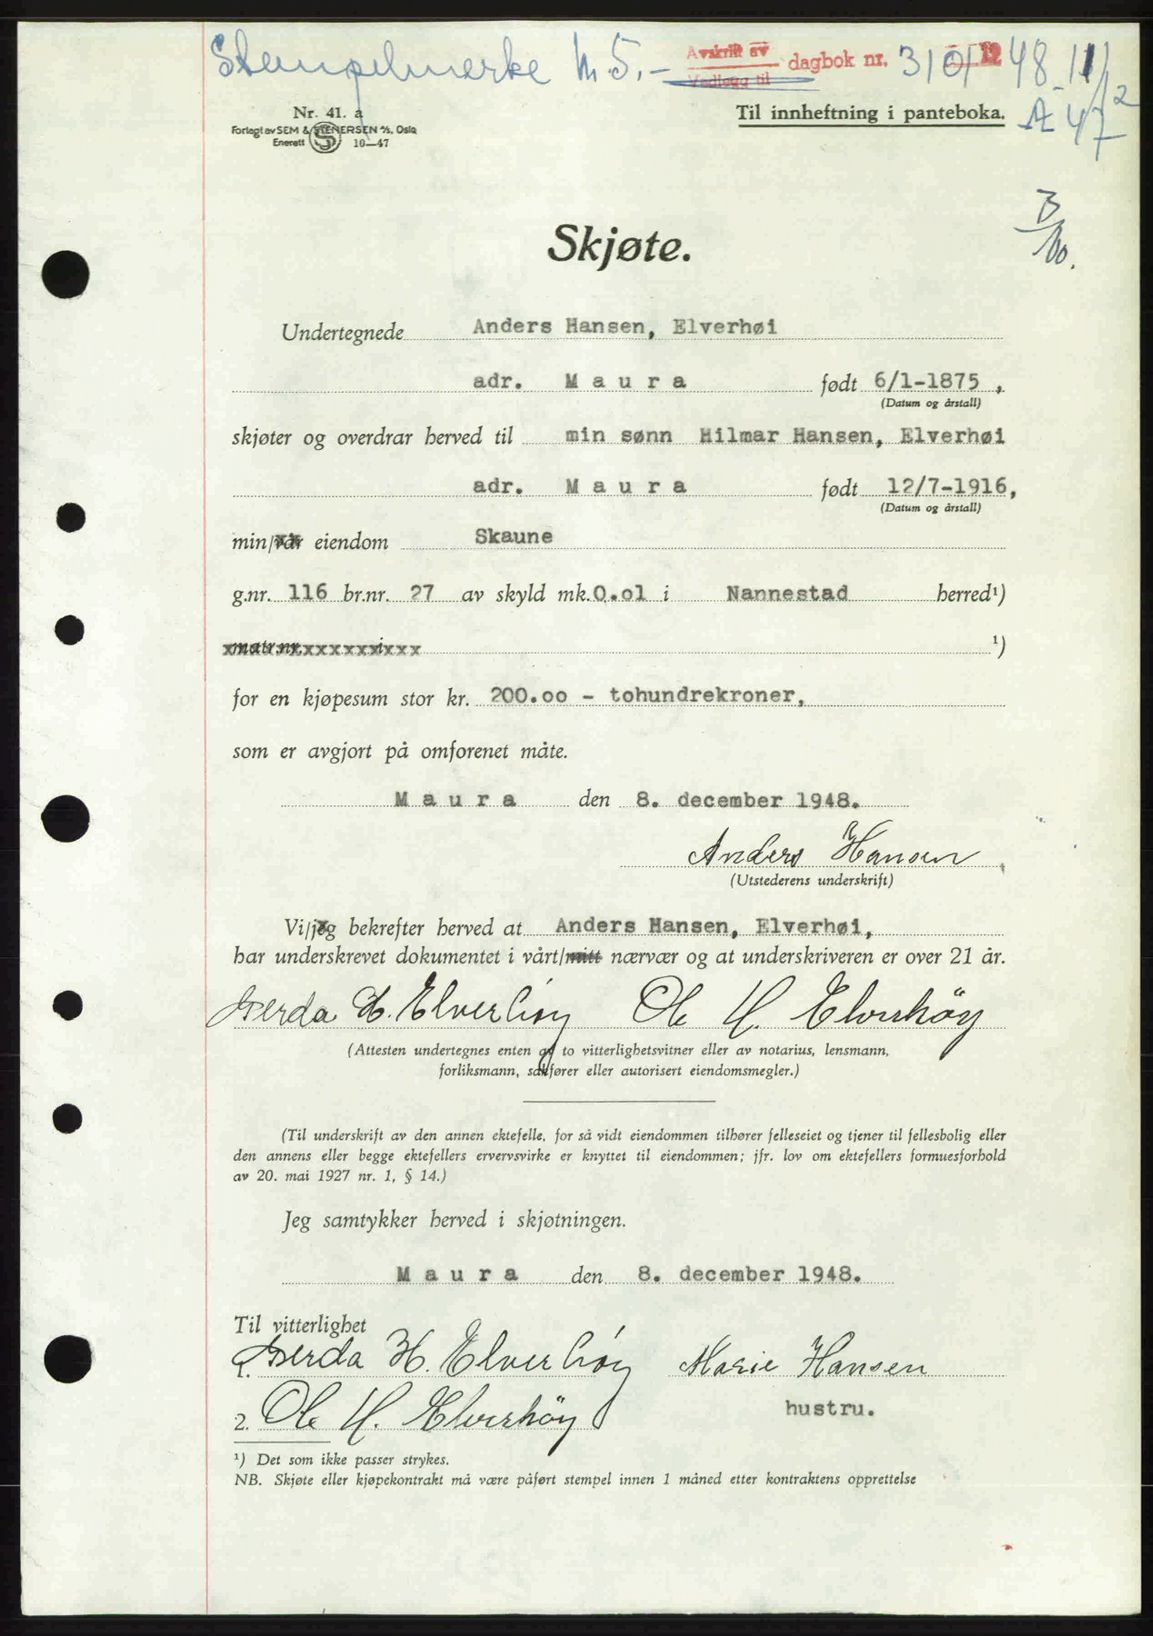 Stempelmerke kr. 5.-
Avskrift av
Vedlegg til
dagbok nr. 3101 1948 11/12
A 47
Nr. 41. a
Forlagt av SEM & STENERSEN A/S, Oslo
Enerett 10—47
Til innheftning i panteboka.
Skjøte.
Undertegnede Anders Hansen, Elverhøi
adr. Maura født 6/1-1875,
(Datum og årstall)
skjøter og overdrar herved til min sønn Hilmar Hansen, Elverhøi
adr. Maura født 12/7-1916,
(Datum og årstall)
min/vår eiendom Skaune
g.nr. 116 br.nr. 27 av skyld mk. 0.01 i Nannestad herred¹)
matr.nr. i ¹)
for en kjøpesum stor kr. 200.00 - tohundrekroner,
som er avgjort på omforenet måte.
Maura den 8. december 1948.
Anders Hansen
(Utstederens underskrift)
Vi/jeg bekrefter herved at Anders Hansen, Elverhøi,
har underskrevet dokumentet i vårt/mitt nærvær og at underskriveren er over 21 år.
Gerda H. Elverhöy Ole H. Elverhöy
(Attesten undertegnes enten av to vitterlighetsvitner eller av notarius, lensmann,
forliksmann, sakfører eller autorisert eiendomsmegler.)
(Til underskrift av den annen ektefelle, for så vidt eiendommen tilhører felleseiet og tjener til fellesbolig eller
den annens eller begge ektefellers ervervsvirke er knyttet til eiendommen; jfr. lov om ektefellers formuesforhold
av 20. mai 1927 nr. 1, § 14.)
Jeg samtykker herved i skjøtningen.
Maura den 8. december 1948.
Til vitterlighet
1. Gerda H. Elverhöy Marie Hansen
2. Ole H. Elverhöy hustru.
¹) Det som ikke passer strykes.
NB. Skjøte eller kjøpekontrakt må være påført stempel innen 1 måned etter kontraktens opprettelse